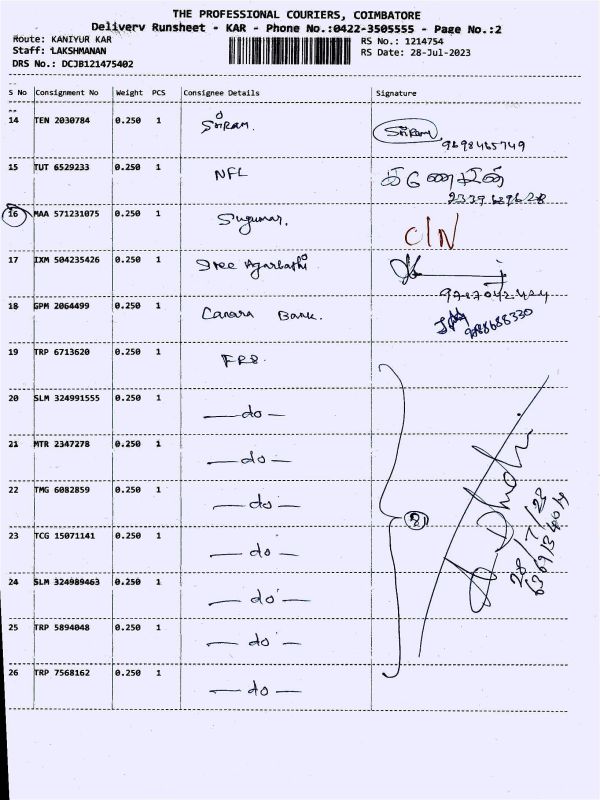 THE PROFESSIONAL COURIERS, COIMBATORE
Delivery Runsheet - KAR - Phone No.:0422-3505555 - Page No.:2
Route: KANIYUR KAR
RS No.: 1214754
Staff: LAKSHMANAN
RS Date: 28-Jul-2023
DRS No.: DCJB121475402
S No Consignment No Weight PCS Consignee Details Signature
14 TEN 2030784 0.250 1 Sriram. Sriram
9698465749
15 TUT 6529233 0.250 1 NFL
16 MAA 571231075 0.250 1 Sugumar. C/N
17 IXM 504235426 0.250 1 Sree Agarbathi
9787042424
18 GPM 2064499 0.250 1 Canara Bank.
9688688330
19 TRP 6713620 0.250 1 FRS.
20 SLM 324991555 0.250 1 — do —
21 MTR 2347278 0.250 1 — do —
22 TMG 6082859 0.250 1 — do — 8
23 TCG 15071141 0.250 1 — do —
24 SLM 324989463 0.250 1 — do —
25 TRP 5894048 0.250 1 — do —
26 TRP 7568162 0.250 1 — do —
28/7/23